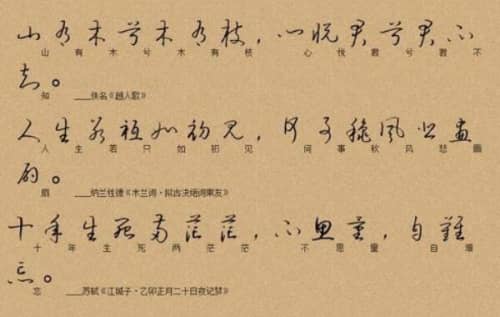 山有木兮木有枝，心悦君兮君不
山 有 木 兮 木 有 枝 心 悦 君 兮 君 不
知。
知 ___佚名《越人歌》
人生若衹如初见，何事秋風悲畫
人 生 若 只 如 初 见 何 事 秋 风 悲 画
扇。
扇 ___纳兰性德《木兰词·拟古决绝词柬友》
十年生死兩茫茫，不思量，自難
十 年 生 死 两 茫 茫 不 思 量 自 难
忘。
忘 ___苏轼《江城子·乙卯正月二十日夜记梦》